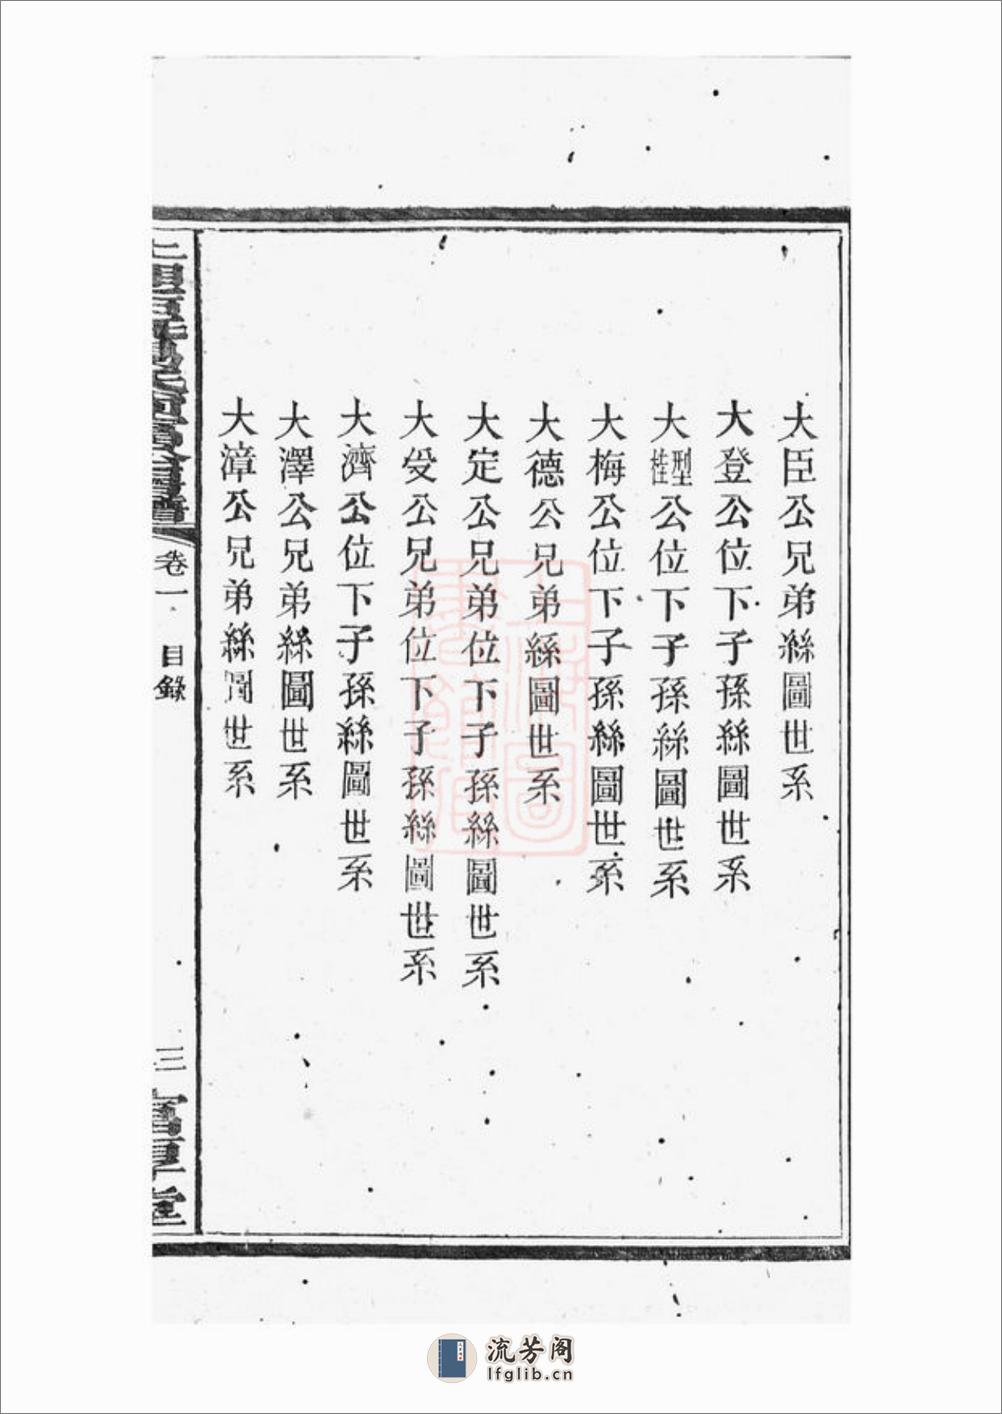 大臣公兄弟絲圖世系
大登公位下子孫絲圖世系
大型桂公位下子孫絲圖世系
大梅公位下子孫絲圖世系
大德公兄弟絲圖世系
大定公兄弟位下子孫絲圖世系
大受公兄弟位下子孫絲圖世系
大濟公位下子孫絲圖世系
大澤公兄弟絲圖世系
大漳公兄弟絲圖世系
卷一 目錄
三
流芳阁
lfglib.cn